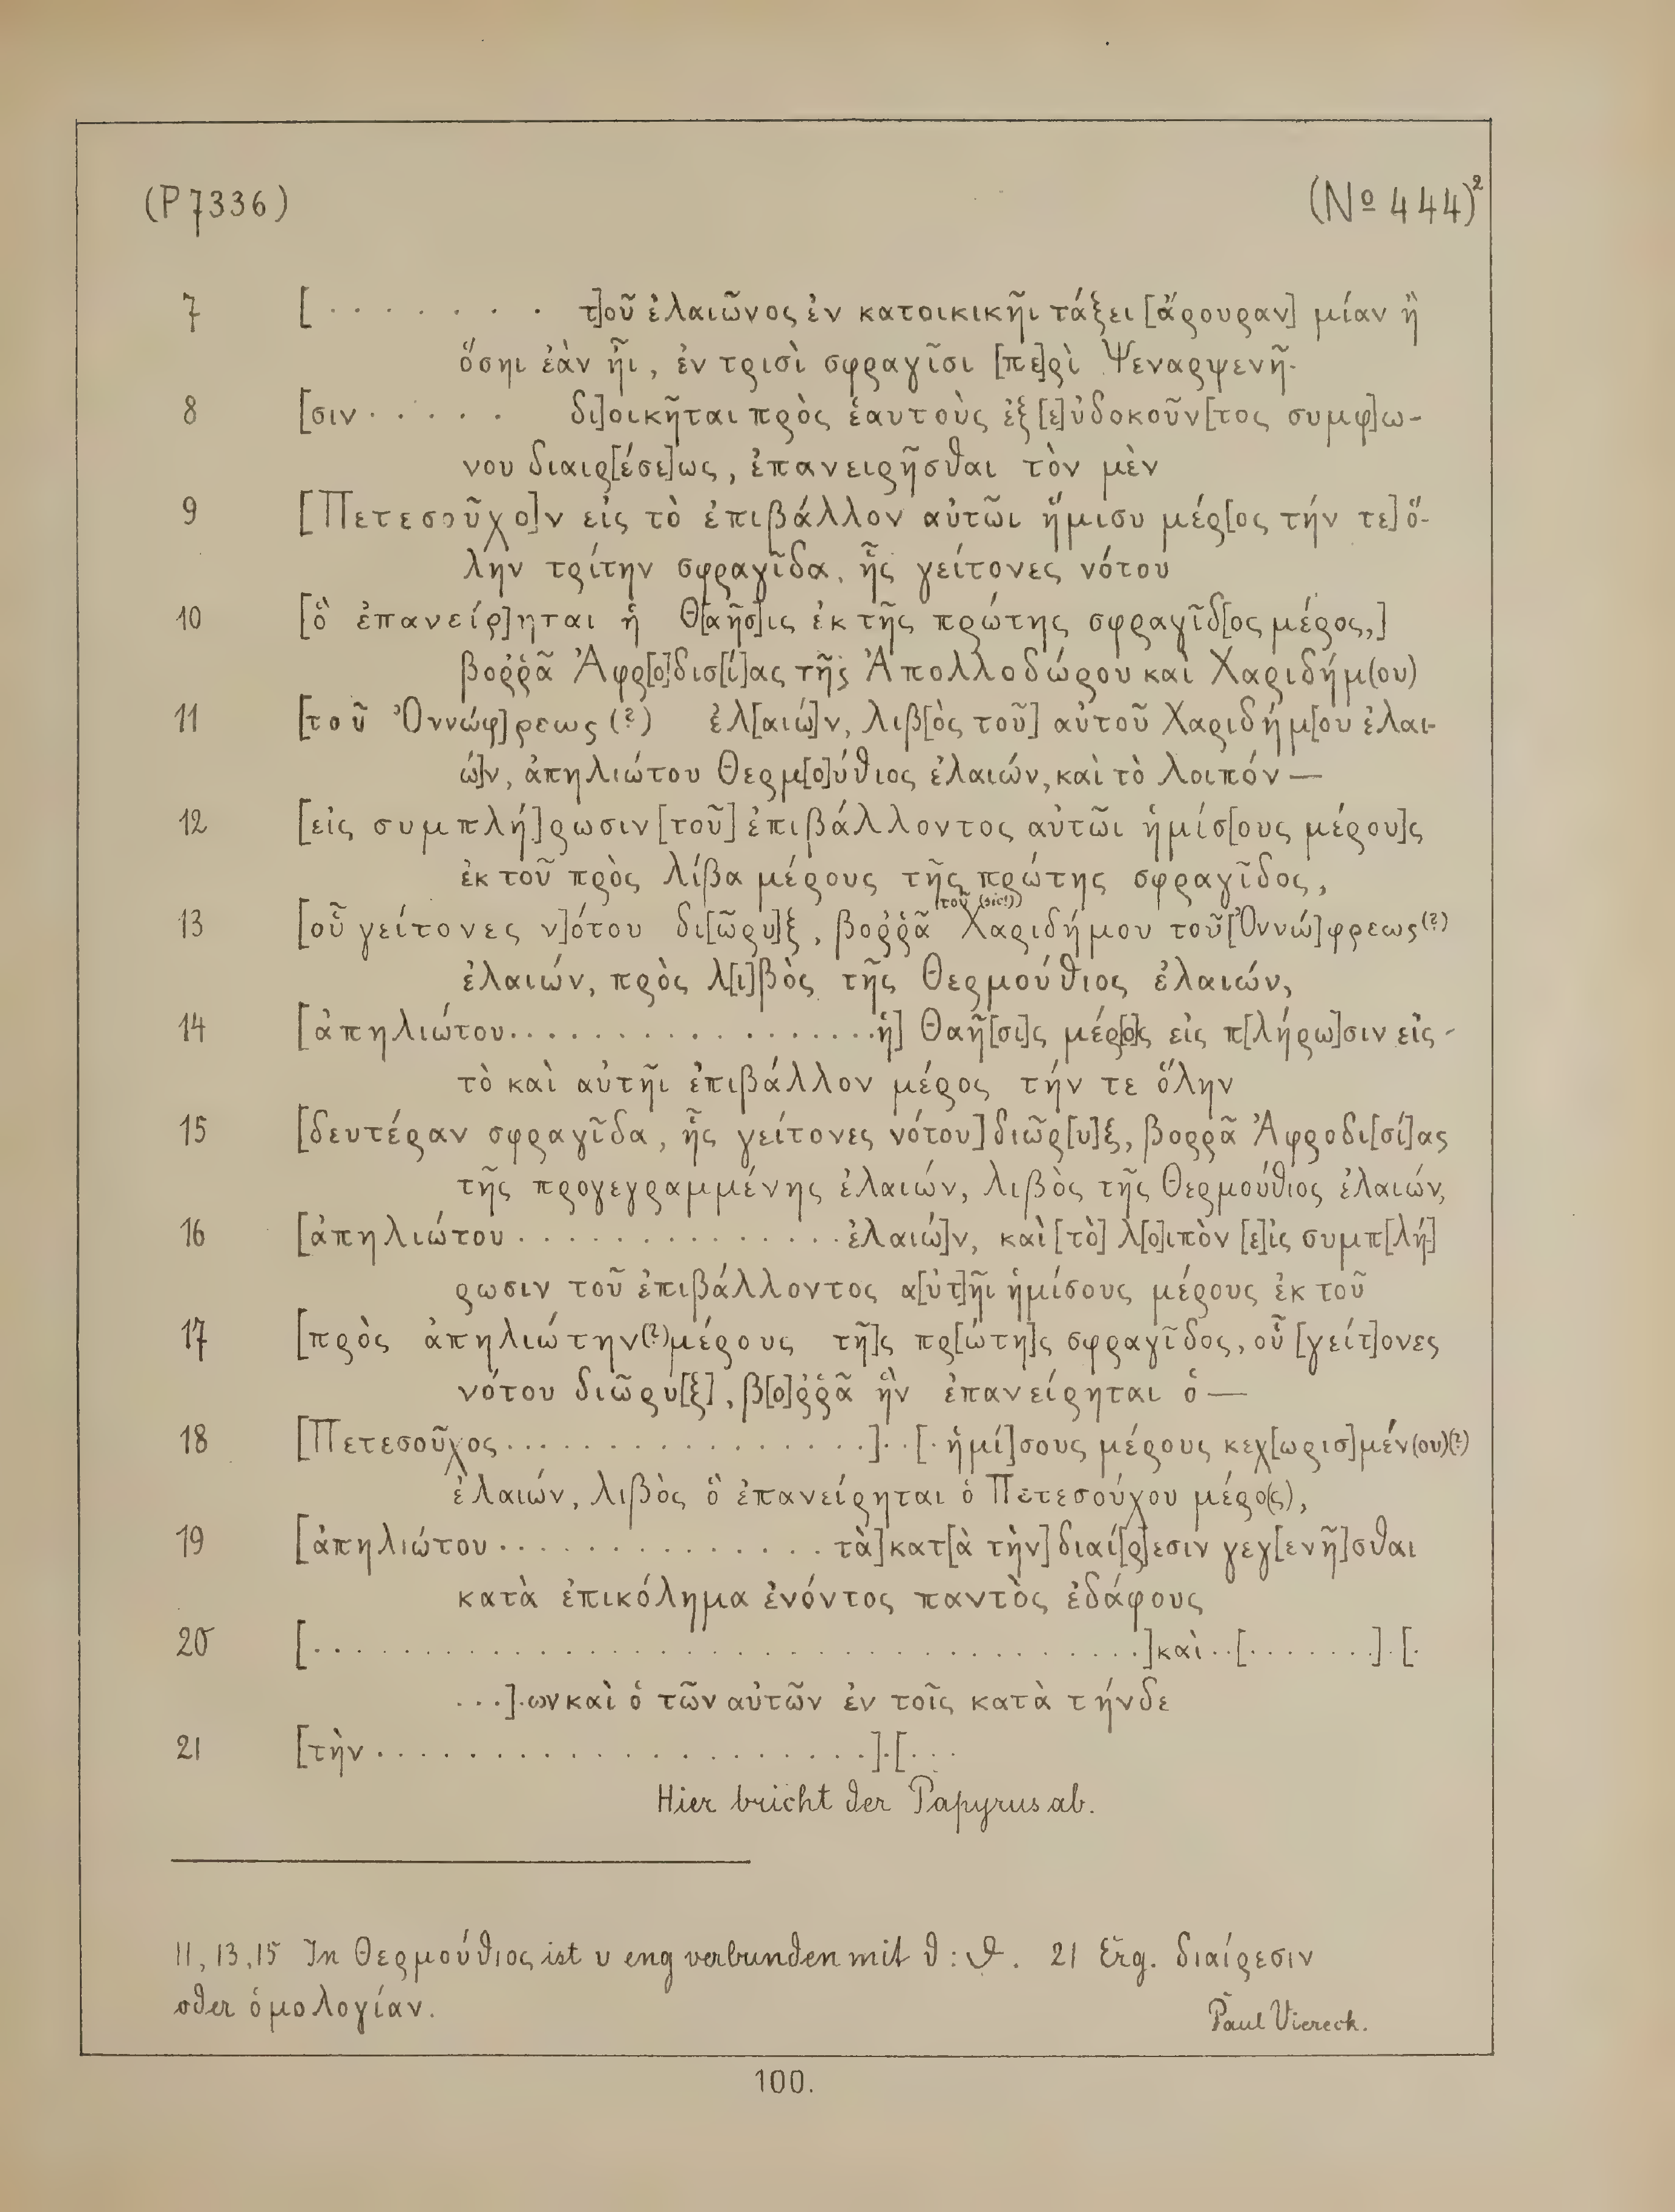 (P 7336) (No 444)2
7 [ . . . . . . . . τ]οῦ ἐλαιῶνος ἐν κατοικικῆι τάξει [ἄρουραν] μίαν ἢ
ὅσηι ἐὰν ἦι, ἐν τρισὶ σφραγῖσι [πε]ρὶ Ψεναρψενῆ-
8 [σιν . . . . . δι]οικῆται πρὸς ἑαυτοὺς ἐξ [ε]ὐδοκοῦν[τος συμφ]ω-
νου διαιρ[έσε]ως, ἐπανειρῆσθαι τὸν μὲν
9 [Πετεσοῦχο]ν εἰς τὸ ἐπιβάλλον αὐτῶι ἥμισυ μέρ[ος τήν τε] ὅ-
λην τρίτην σφραγῖδα, ἧς γείτονες νότου
10 [ὃ ἐπανείρ]ηται ἡ Θ[αῆσ]ις ἐκ τῆς πρώτης σφραγῖδ[ος μέρος,]
βοῤῥᾶ Ἀφρ[ο]δισ[ί]ας τῆς Ἀπολλοδώρου καὶ Χαριδήμ(ου)
11 [τοῦ Ὀννώφ]ρεως (?) ἐλ[αιώ]ν, λιβ[ὸς τοῦ] αὐτοῦ Χαριδήμ[ου ἐλαι-
ώ]ν, ἀπηλιώτου Θερμ[ο]ύθιος ἐλαιών, καὶ τὸ λοιπόν —
12 [εἰς συμπλή]ρωσιν [τοῦ] ἐπιβάλλοντος αὐτῶι ἡμίσ[ους μέρου]ς
ἐκ τοῦ πρὸς λίβα μέρους τῆς πρώτης σφραγῖδος,
13 [οὗ γείτονες ν]ότου δι[ῶρυ]ξ, βοῤῥᾶ |τοῦ (sic!)| Χαριδήμου τοῦ [Ὀννώ]φρεως (?)
ἐλαιών, πρὸς λ[ι]βὸς τῆς Θερμούθιος ἐλαιών,
14 [ἀπηλιώτου . . . . . . . . . . . . . . . . . . ἡ] Θαῆ[σι]ς μέρ[ο]ς εἰς π[λήρω]σιν εἰς -
τὸ καὶ αὐτῆι ἐπιβάλλον μέρος τήν τε ὅλην
15 [δευτέραν σφραγῖδα, ἧς γείτονες νότου] διῶρ[υ]ξ, βορρᾶ Ἀφροδι[σί]ας
τῆς προγεγραμμένης ἐλαιών, λιβὸς τῆς Θερμούθιος ἐλαιών,
16 [ἀπηλιώτου . . . . . . . . . . . . . . . ἐλαιώ]ν, καὶ [τὸ] λ[ο]ιπὸν [ε]ἰς συμπ[λή]
ρωσιν τοῦ ἐπιβάλλοντος α[ὐτ]ῆι ἡμίσους μέρους ἐκ τοῦ
17 [πρὸς ἀπηλιώτην (?) μέρους τῆ]ς πρ[ώτη]ς σφραγῖδος, οὗ [γείτ]ονες
νότου διῶρυ[ξ], β[ο]ῤῥᾶ ἣν ἐπανείρηται ὁ —
18 [Πετεσοῦχος . . . . . . . . . . . . . . . . . ] . . [ . ἡμί]σους μέρους κεχ[ωρισ]μέν(ου) (?)
ἐλαιών, λιβὸς ὃ ἐπανείρηται ὁ Πετεσούχου μέρο(ς),
19 [ἀπηλιώτου . . . . . . . . . . . . . . . τὰ] κατ[ὰ τὴν] διαί[ρ]εσιν γεγ[ενῆ]σθαι
κατὰ ἐπικόλημα ἐνόντος παντὸς ἐδάφους
20 [ . . . . . . . . . . . . . . . . . . . . . . . . . . . . . . . . ] καὶ . . [ . . . . . . . ] . [ .
. . . ] . ων καὶ ὁ τῶν αὐτῶν ἐν τοῖς κατὰ τήνδε
21 [τὴν . . . . . . . . . . . . . . . . . . . . . . ] . [ . . .
Hier bricht der Papyrus ab.
11, 13, 15 In Θερμούθιος ist υ eng verbunden mit θ : ϑ. 21 Erg. διαίρεσιν
oder ὁμολογίαν.
Paul Viereck.
100.